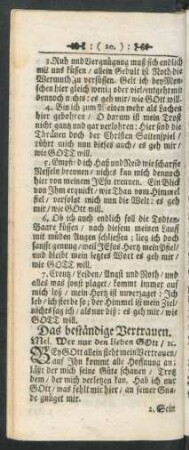 : ( 20. ) :
3. Ruh und Vergnügung muß sich endlich
mit uns küssen / allein Gedult ist Noth die
Wermuth zu versüssen. Gelt ich bey Men-
schen hier gleich wenig oder viel / entgeht mir
dennoch nichts: es geh mir / wie GOtt will.
4. Bin ich zum Weinen mehr als Lachen
hier gebohren / O darum ist mein Trost
nicht gantz und gar verlohren: hier sind die
Thränen doch der Christen Saitenspiel /
rührt mich nun dieses auch / es geh mir /
wie GOtt will.
5. Empfind ich Haß und Neid wie scharffe
Nesseln brennen / nichts kan mich dennoch
hier von meinem JEsu trennen. Ein Blick
von Ihm erquickt / wie Thau vom Himmel
fiel / verfolge mich nun die Welt: es geh
mir / wie GOtt will.
6. Ob ich auch endlich soll die Todten-
Baare küssen / nach diesem meinen Lauff
mit müder Augen schliessen; lieg ich doch
sanfft genung / weil JEsus Hertz mein Pfuel /
und bleibt mein letztes Wort es geh mir
wie GOTT will.
7. Creutz / Leiden / Angst und Noth / und
alles was sonst plaget / kommt immer auf
mich loß / mein Hertz ist unverzaget: Ich
leb / ich sterbe so; der Himmel ist mein Ziel
nichts sag ich als diß: es geh mir / wie
GOTT will.
Das beständige Vertrauen.
Mel. Wer nur den lieben GOtt / rc.
BEy GOtt allein steht mein Vertrauen /
auf Ihn kommt alle Hoffnung an:
Läst der mich seine Güte schauen / Trotz
dem / der mich verletzen kan. Hab ich nur
GOtt / was fehlt mir hier / an seiner Gna-
de gnüget mir.
2. Sein